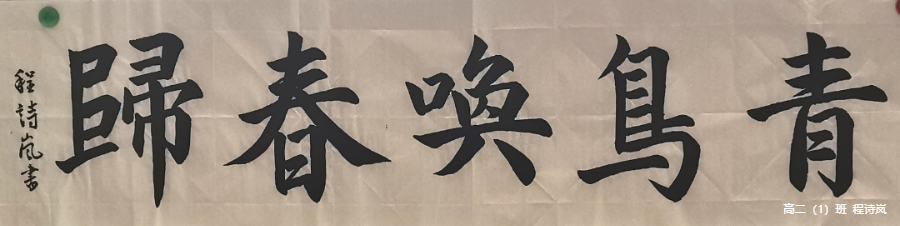 青鳥喚春歸
程詩嵐書
高二（1）班 程诗岚